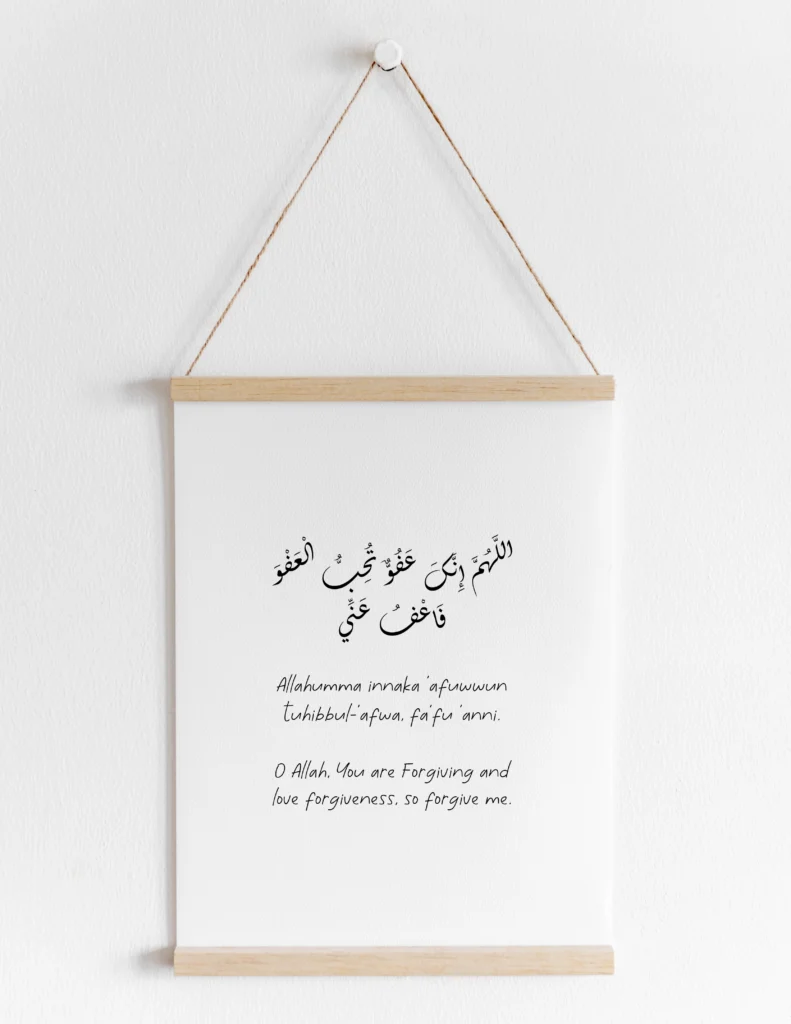 اللَّهُمَّ إِنَّكَ عَفُوٌّ تُحِبُّ الْعَفْوَ
فَاعْفُ عَنِّي
Allahumma innaka 'afuwwun
tuhibbul-'afwa, fa'fu 'anni.
O Allah, You are Forgiving and
love forgiveness, so forgive me.